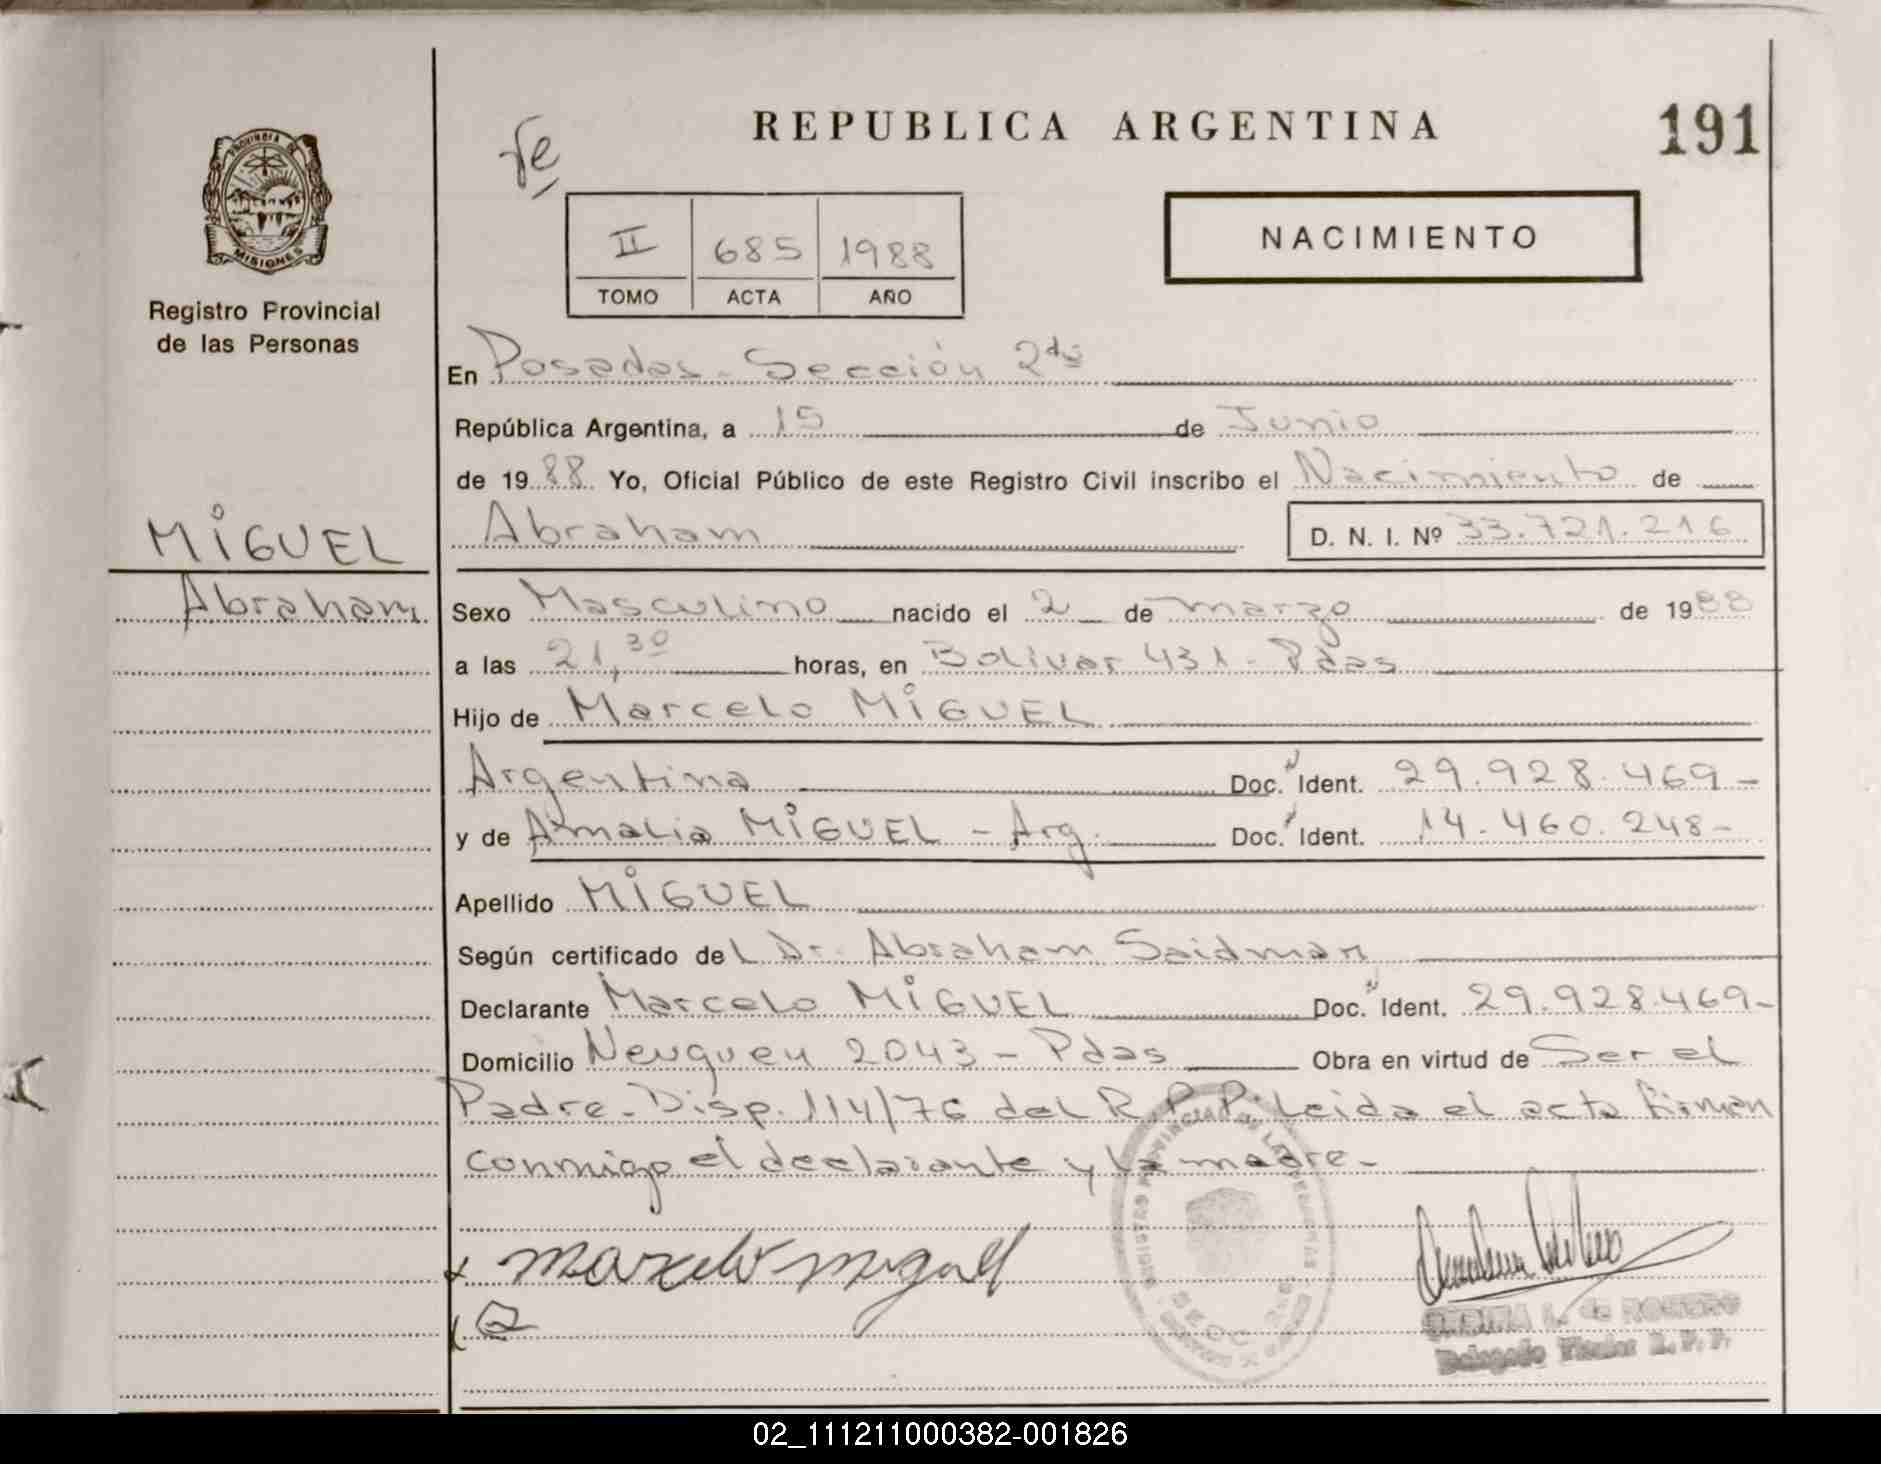 REPUBLICA ARGENTINA
191
PROVINCIA DE
MISIONES
Registro Provincial
de las Personas
NACIMIENTO
II 685 1988
TOMO ACTA AÑO
En Posadas - Sección 2da
República Argentina, a 15 de Junio
de 1988 Yo, Oficial Público de este Registro Civil inscribo el Nacimiento de
Abraham D. N. I. Nº 33.721.216
MIGUEL
Abraham
Sexo Masculino nacido el 2 de marzo de 1988
a las 21,30 horas, en Bolivar 431 - Pdas
Hijo de Marcelo MIGUEL
Argentina Doc. Ident. 29.928.469-
y de Amalia MIGUEL - Arg. Doc. Ident. 14.460.248-
Apellido MIGUEL
Según certificado del Dr. Abraham Saidman
Declarante Marcelo MIGUEL Doc. Ident. 29.928.469-
Domicilio Neuquen 2043 - Pdas Obra en virtud de Ser el
Padre - Disp. 114/76 del R.P.P. Leida el acta firman
conmigo el declarante y la madre -
marcelo miguel
L. de ROMERO
Delegado Titular R. P. P.
02_111211000382-001826